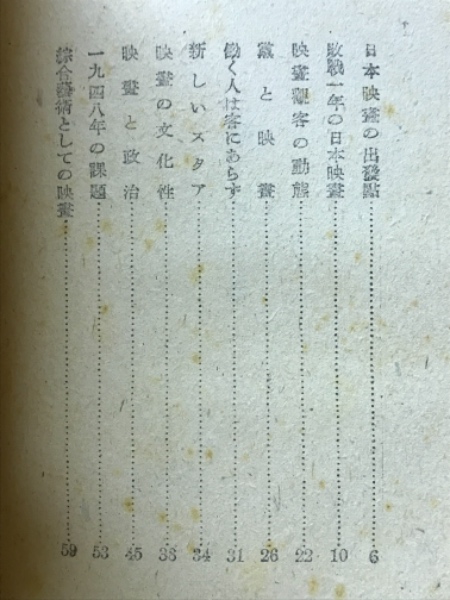 日本映畫の出發點 6
敗戰一年の日本映畫 10
映畫觀客の動態 22
黨と映畫 26
働く人は客にあらず 31
新しいスタア 34
映畫の文化性 38
映畫と政治 45
一九四八年の課題 53
綜合藝術としての映畫 59